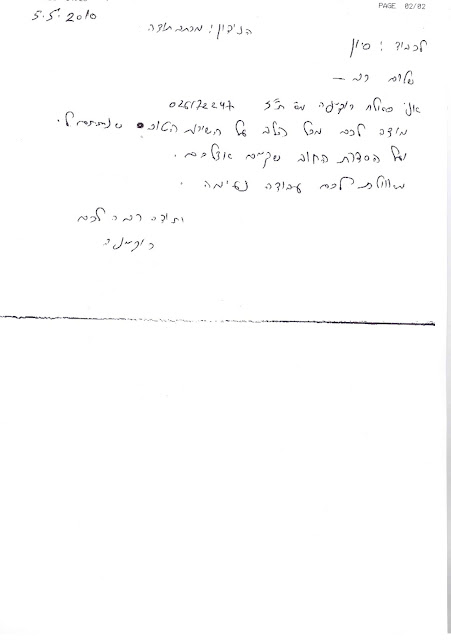 PAGE 02/02
5.5.2010
הנידון: מכתב תודה
לכבוד: סיון
שלום רב —
אני רוקייה עם ת"ז 026172247
מודה לכם מכל הלב על השירות הטוב שנתתם לי.
ועל הסדרת החוב שקיים אצלכם.
מאחלת לכם עבודה נעימה.
ותודה רבה לכם
רוקייה